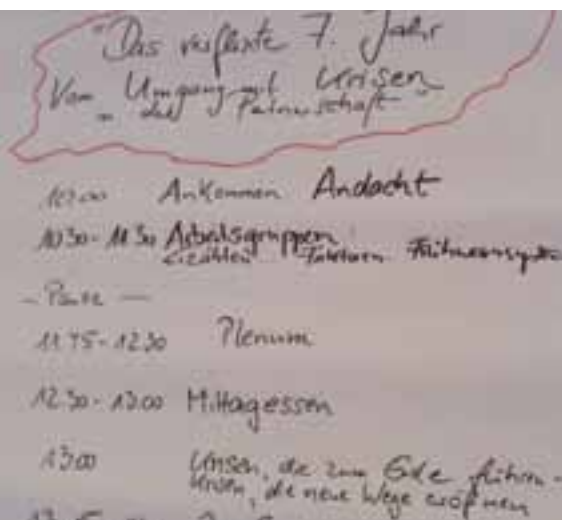 "Das verflixte 7. Jahr
Vom Umgang mit Krisen
in der Partnerschaft"
10:00 Ankommen Andacht
1030-1130 Arbeitsgruppen
erzählen
- Pause -
11.45-1230 Plenum
1230-1300 Mittagessen
1300 Krisen, die zum Ende führen -
Krisen, die neue Wege eröffnen